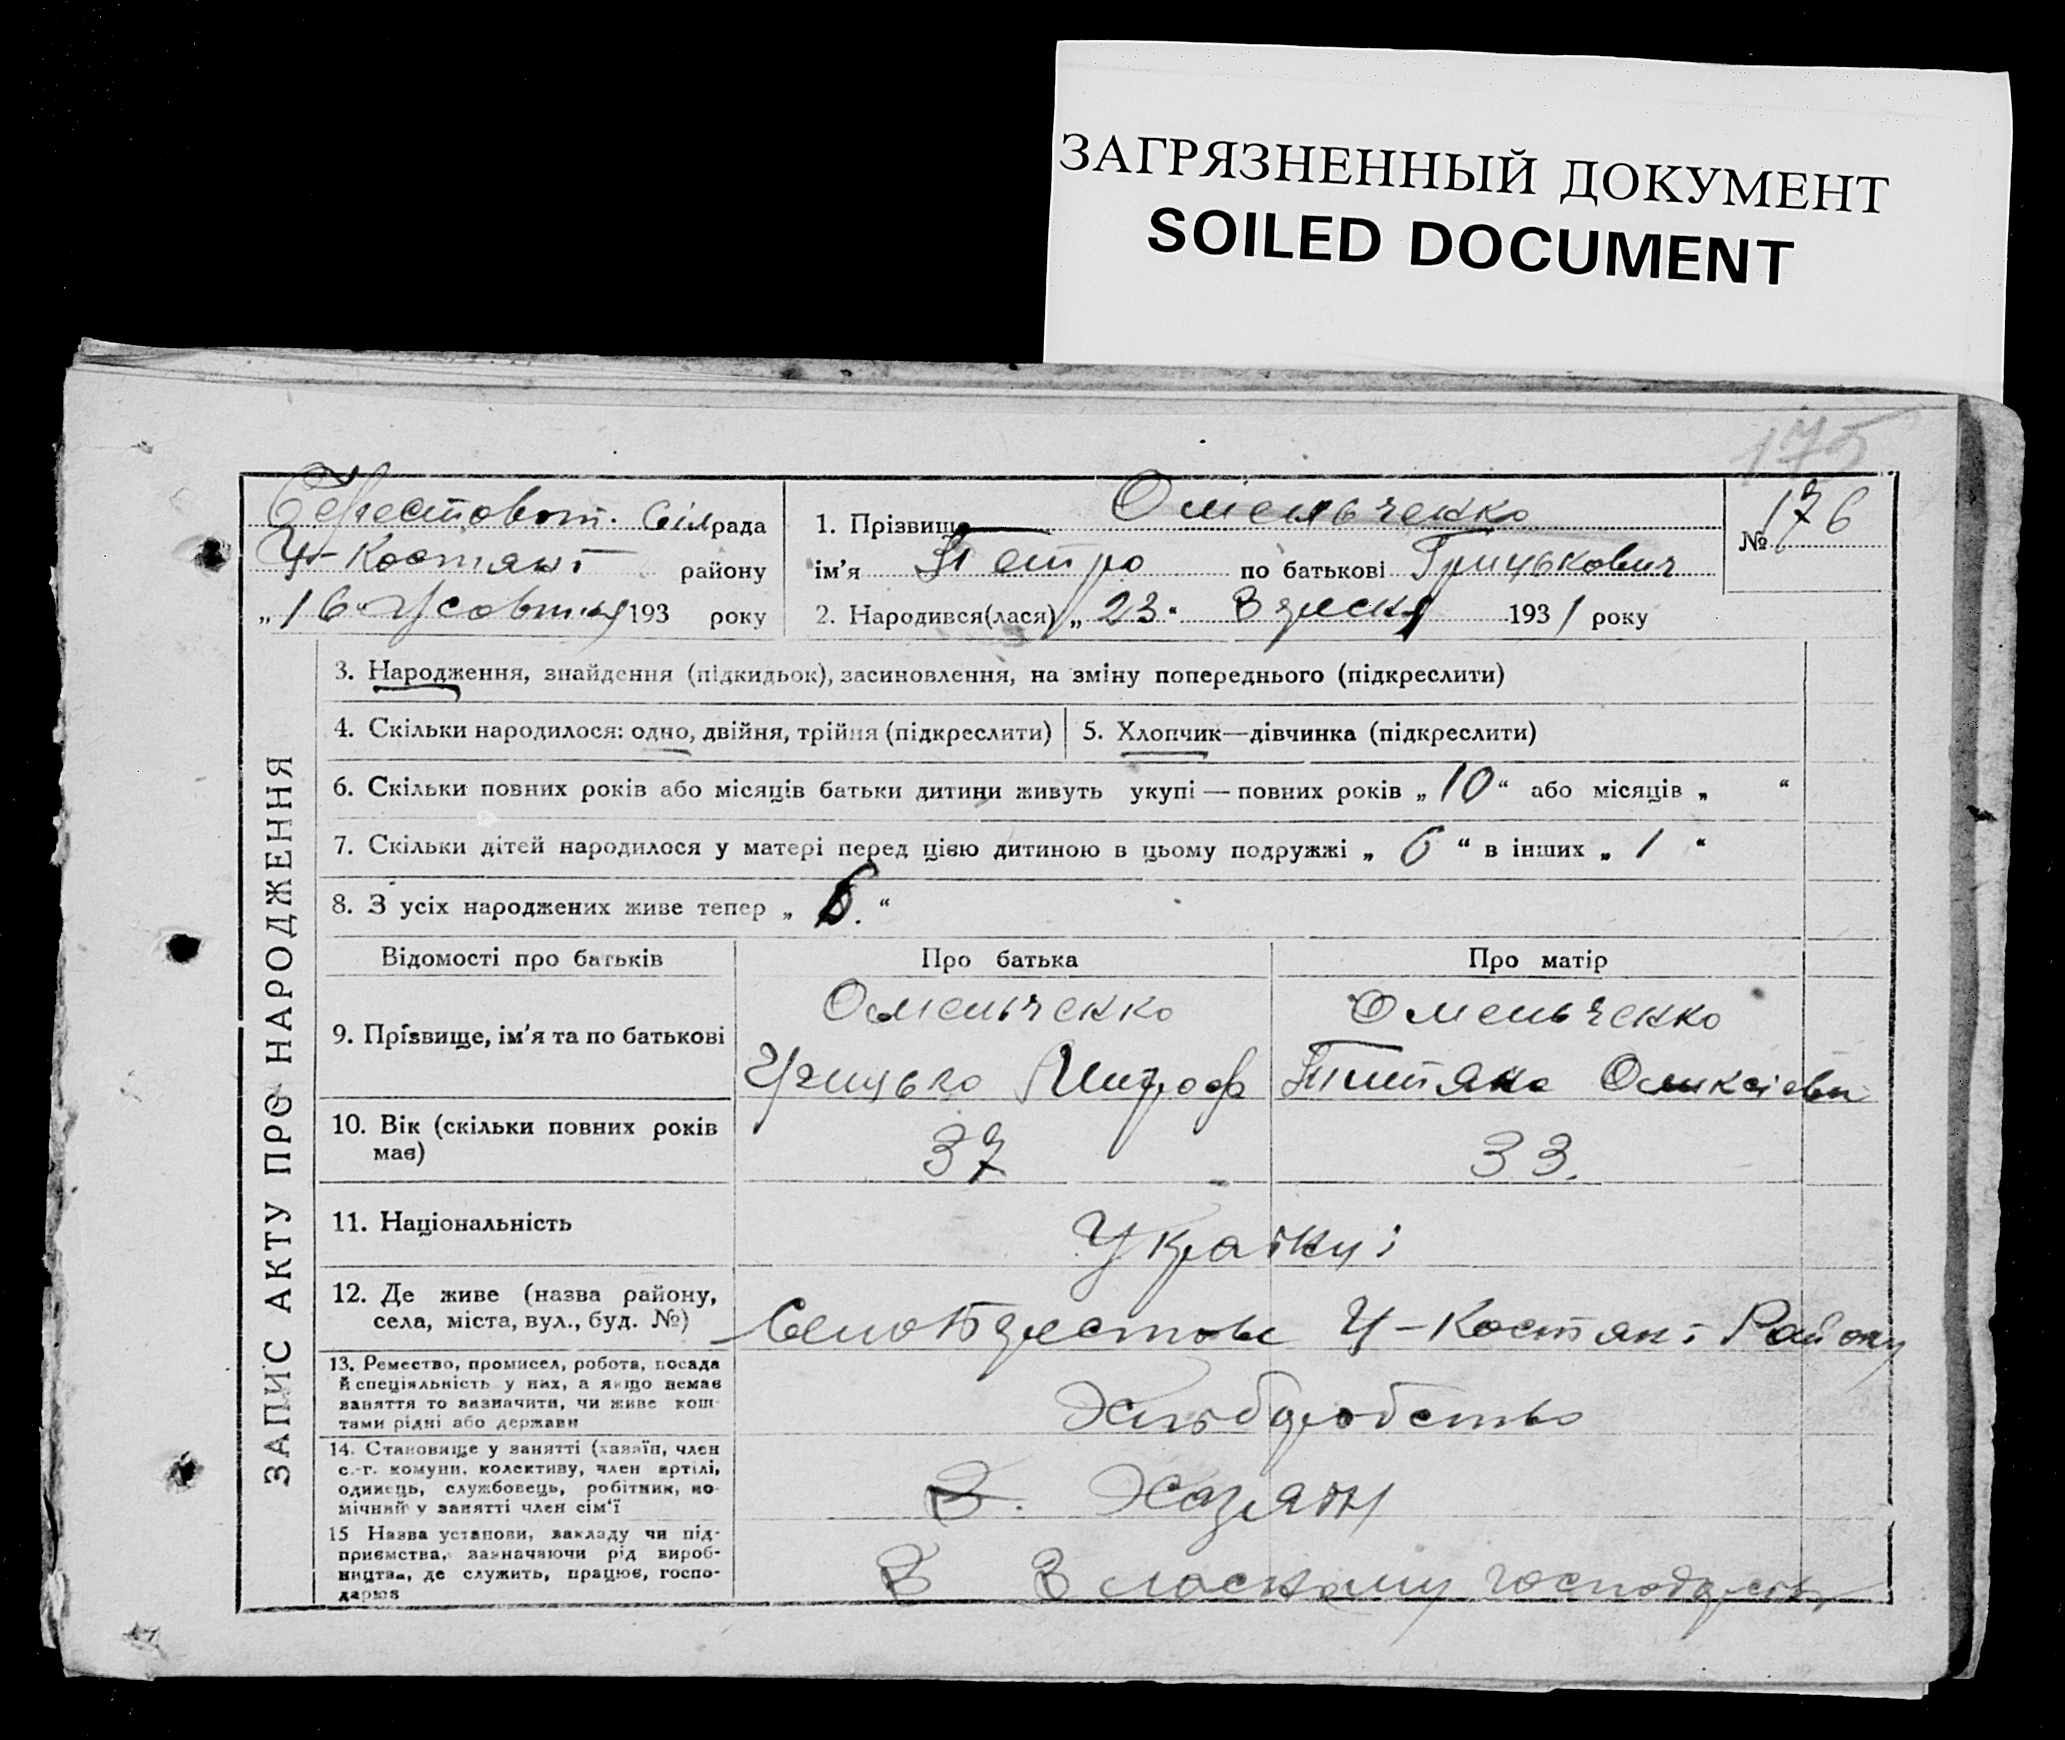 ЗАГРЯЗНЕННЫЙ ДОКУМЕНТ
SOILED DOCUMENT
175
Берестовот. Сілрада
Ч-Костянт району
„16“ Жовтня 193 року
1. Прізвище Омельченко
ім'я Петро по батькові Грицькович
2. Народився(лася) „23“ Вресня 1931 року
№ 176
ЗАПИС АКТУ ПРО НАРОДЖЕННЯ
3. Народження, знайдення (підкидьок), засиновлення, на зміну попереднього (підкреслити)
4. Скільки народилося: одно, двійня, трійня (підкреслити)
5. Хлопчик—дівчинка (підкреслити)
6. Скільки повних років або місяців батьки дитини живуть укупі — повних років „10“ або місяців „ “
7. Скільки дітей народилося у матері перед цією дитиною в цьому подружжі „6“ в інших „1“
8. З усіх народжених живе тепер „6.“
Відомості про батьків Про батька Про матір
9. Прізвище, ім'я та по батькові
Омельченко Омельченко
Грицько Митроф Титяна Оликсієвн
10. Вік (скільки повних років має)
37 33.
11. Національність
Українці
12. Де живе (назва району,
села, міста, вул., буд. №)
Село Берестове Ч-Костянт Району
13. Ремество, промисел, робота, посада
й спеціяльність у них, а якщо немає
заняття то визначити, чи живе кош-
тами рідні або держави
Хліборобство
14. Становище у занятті (хазяїн, член
с.-г. комуни, колективу, член артілі,
одинець, службовець, робітник, по-
мічний у занятті член сім'ї
Хазяін
15 Назва установи, закладу чи під-
приємства, зазначаючи рід вироб-
ництва, де служить, працює, госпо-
дарює
В Власному господарстві